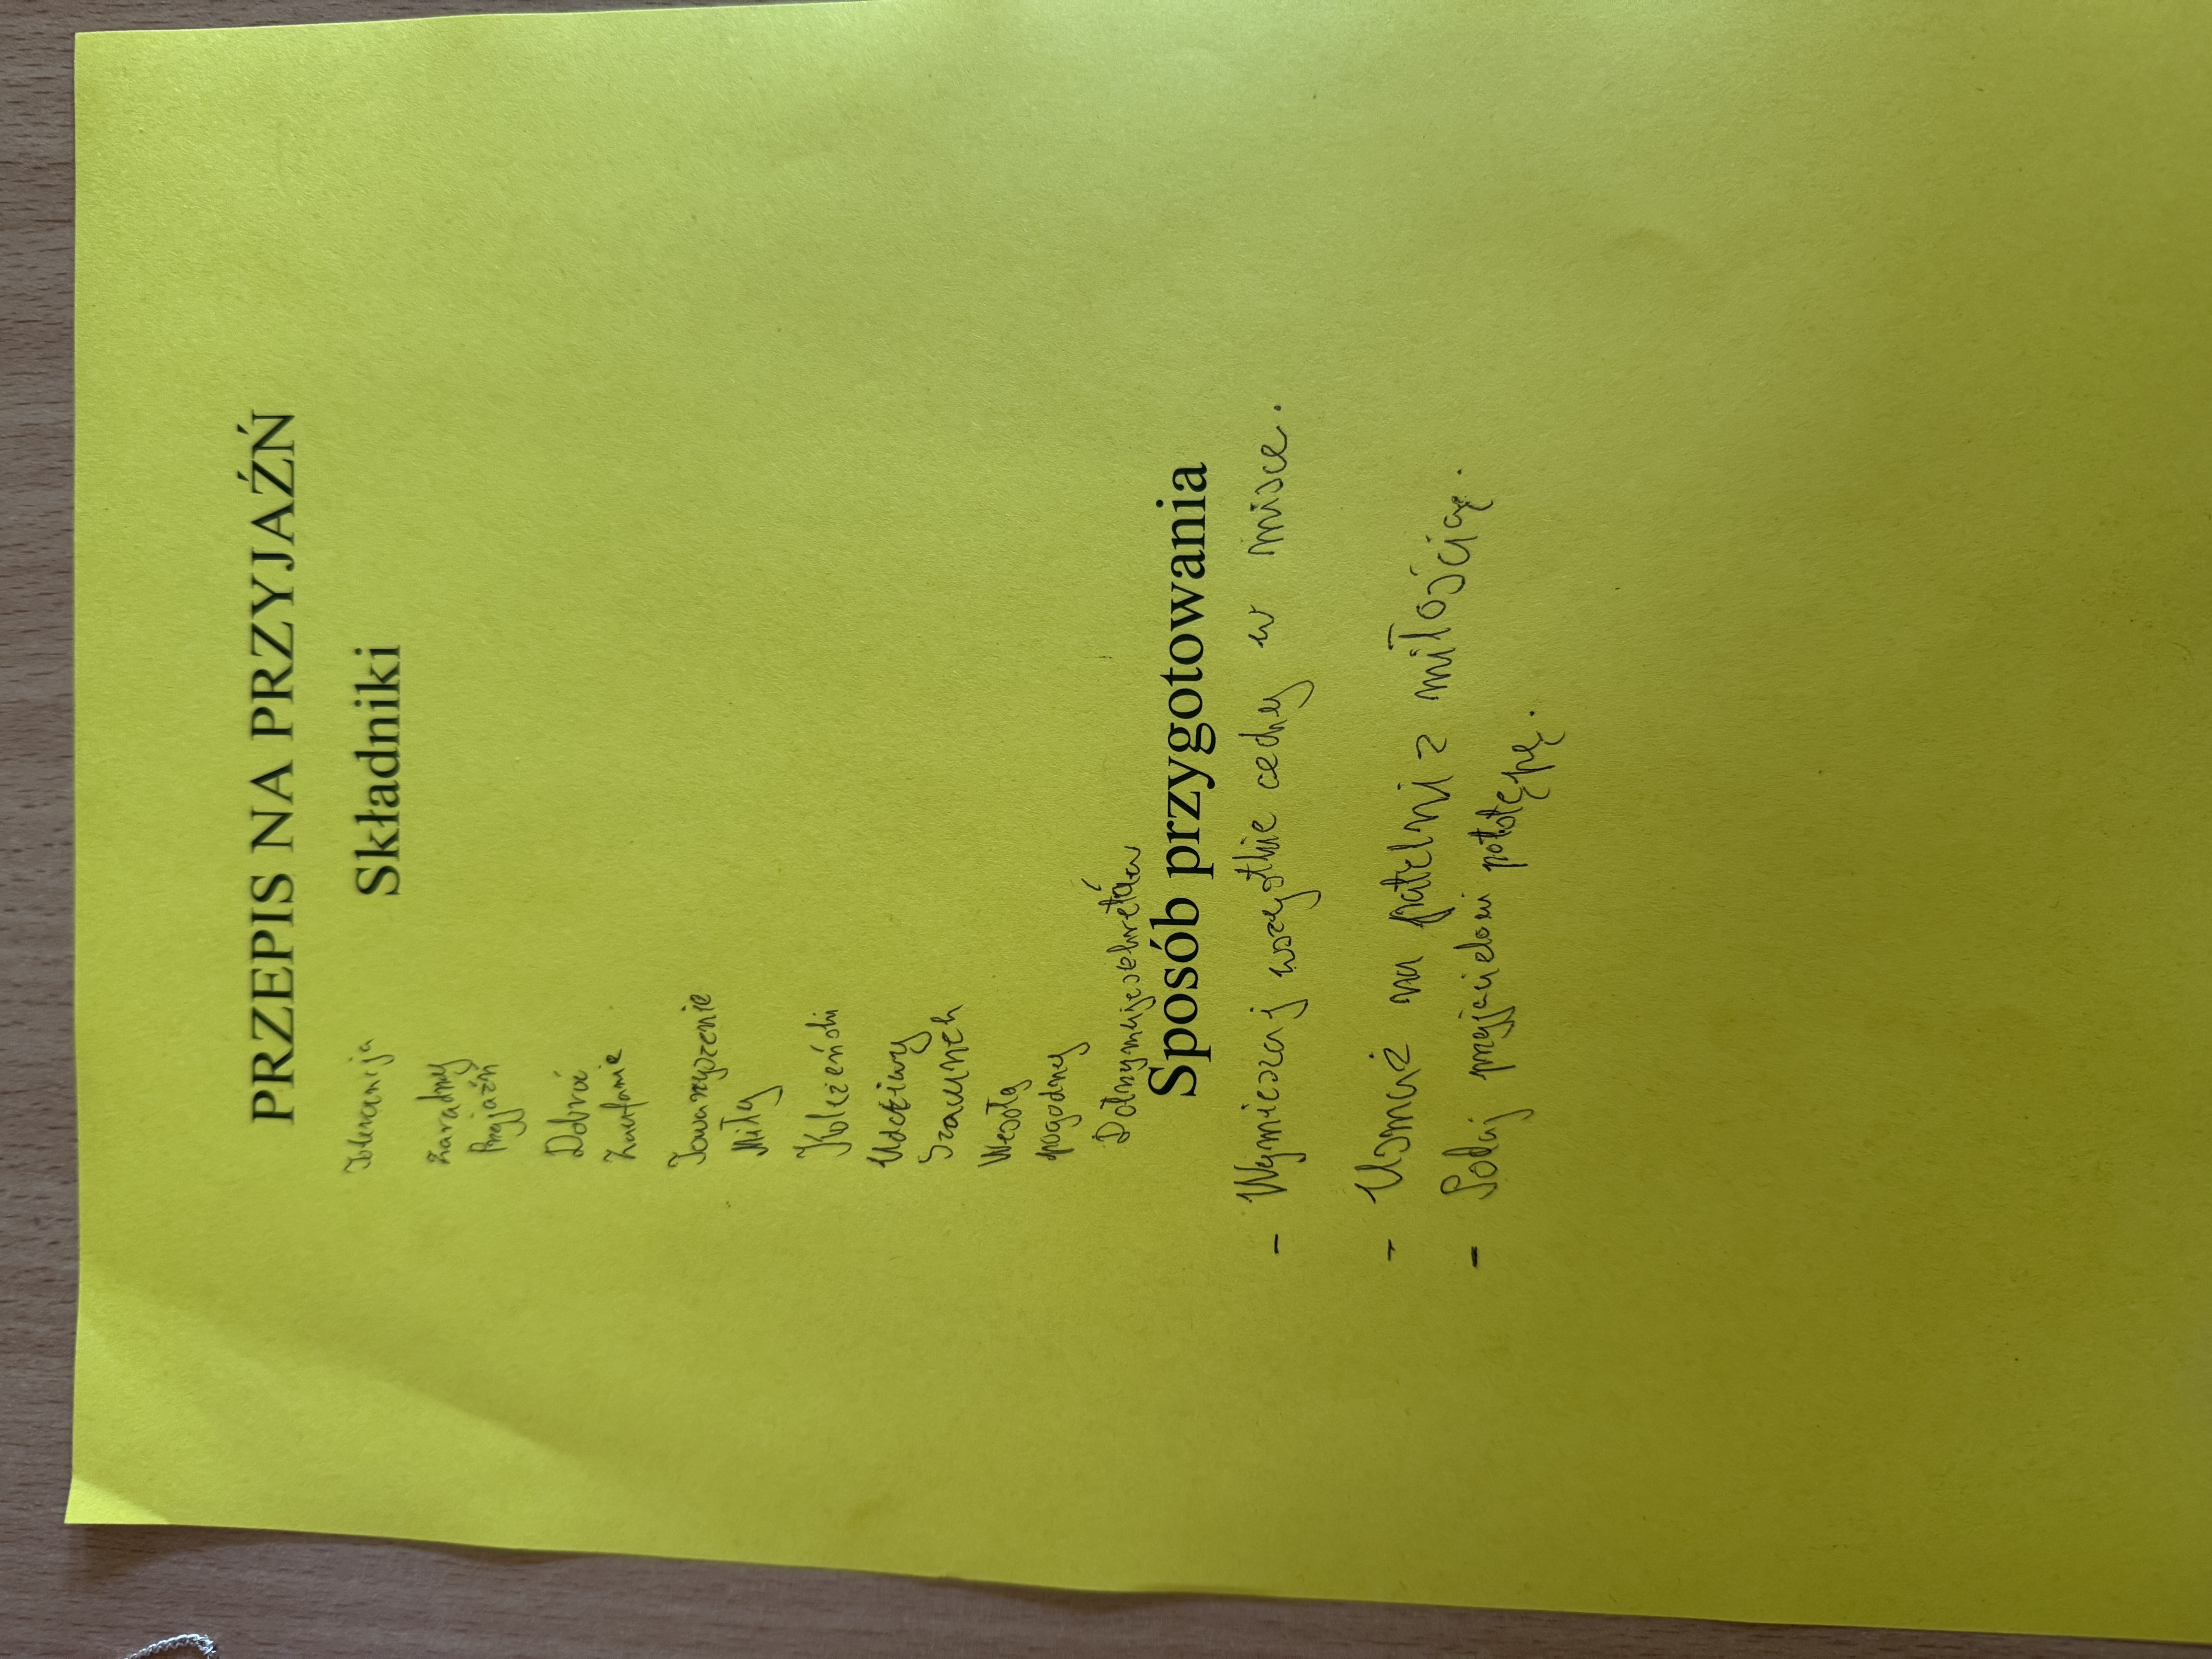 PRZEPIS NA PRZYJAŹŃ
Składniki
Tolerancija
Zaradny
Przyjaźń
Dobroć
Zaufanie
Towarzyszenie
Miły
Koleżeński
Uczciwy
Szacunek
Wesoły
pogodny
Dotrzymuje sekretów
Sposób przygotowania
- Wymieszaj wszystkie cechy w misce.
- Usmaż na patelni z miłością.
- Podaj przyjacielowi